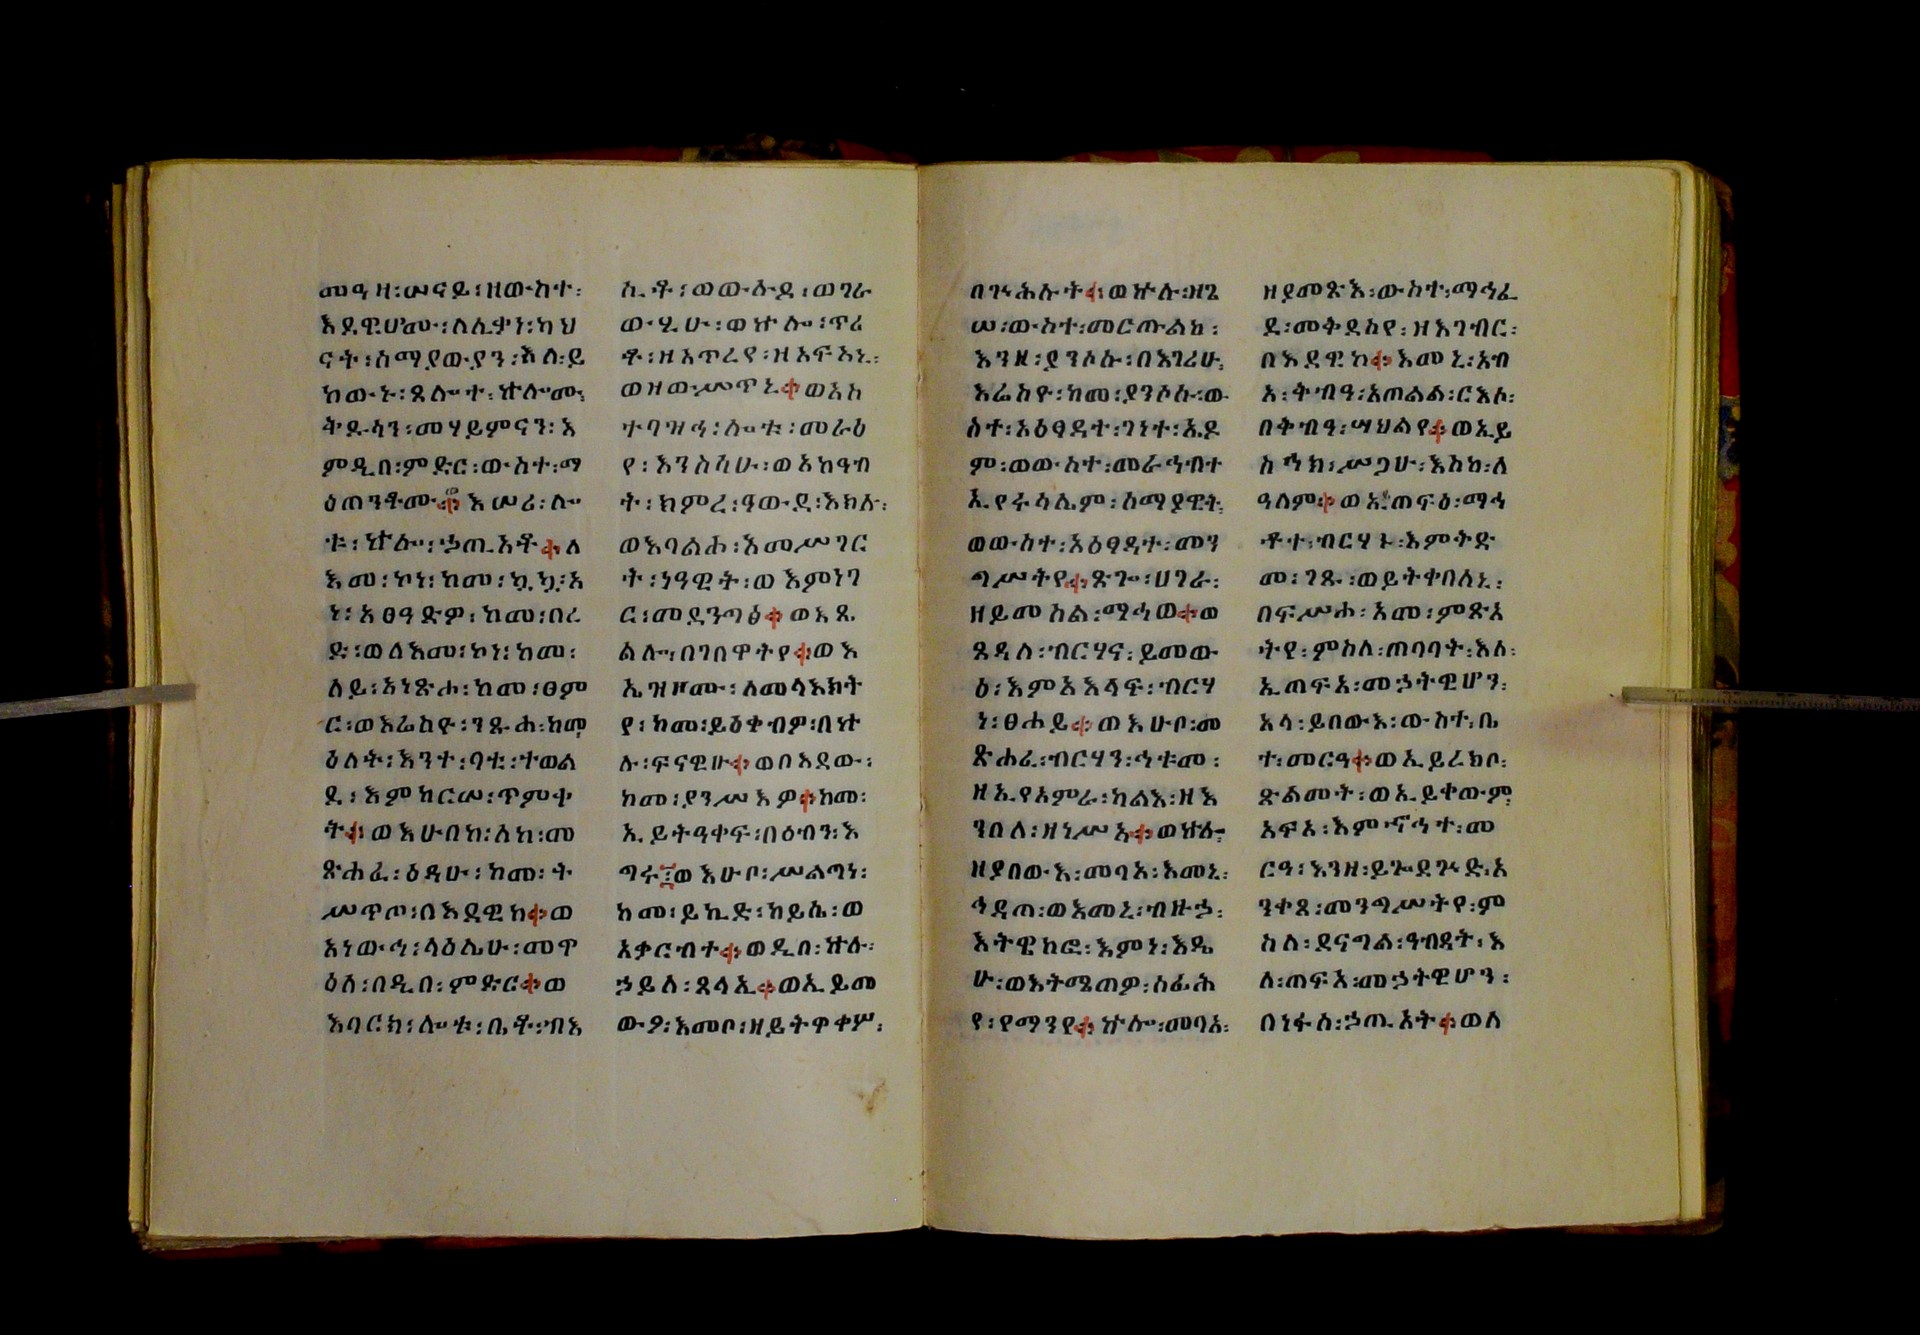 መዓዛ፡ሠናይ፡ዘውስተ፡
እደዊሆሙ፡ለሊቃነ፡ካህ
ናት፡ሰማያውያን፡እለ፡ይ
ከውኑ፡ጸሎተ፡ኵሎሙ፡
ቅዱሳን፡መሃይምናን፡እ
ምዲበ፡ምድር፡ውስተ፡ማ
ዕጠንቶሙ። እሠሪ፡ሎ
ቱ፡ኵሎ፡ኃጢአቶ።ለ
እመ፡ኮነ፡ከመ፡ኳኳ፡አ
ነ፡አፀዓድዎ፡ከመ፡በረ
ድ፡ወለእመ፡ኮነ፡ከመ፡
ለይ፡አነጽሖ፡ከመ፡ፀም
ር፡ወእሬስዮ፡ንጹሐ፡ከመ
ዕለት፡እንተ፡ባቲ፡ተወል
ደ፡እምከርሠ፡ጥምቀ
ት።ወእሁበከ፡ለከ፡መ
ጽሐፈ፡ዕዳሁ፡ከመ፡ት
ሥጥጦ፡በእደዊከ።ወ
አነውኅ፡ላዕሌሁ፡መዋ
ዕለ፡በዲበ፡ምድር።ወ
እባርክ፡ሎቱ፡ቤቶ፡ብእ
ሲቶ፡ወውሉደ፡ወገራ
ውሂሁ፡ወኵሎ፡ጥሪ
ቶ፡ዘአጥረየ፡ዘአፍአኒ፡
ወዘውሥጥኒ።ወአስ
ተባዝኅ፡ሎቱ፡መራዕ
የ፡እንስሳሁ፡ወአከዓብ
ት፡ክምረ፡ዓውደ፡እክሉ፡
ወእባልሖ፡እመሥገር
ት፡ነዓዊት፡ወእምነገ
ር፡መደንግፅ።ወእጼ
ልሎ፡በገበዋትየ።ወእ
ኤዝዞሙ፡ለመላእክት
የ፡ከመ፡ይዕቀብዎ፡በኵ
ሉ፡ፍናዊሁ።ወበእደው፡
ከመ፡ያንሥእዎ።ከመ፡
ኢይትዓቀፍ፡በዕብን፡እ
ግሩ፤ወእሁቦ፡ሥልጣነ፡
ከመ፡ይኪድ፡ከይሴ፡ወ
አቃርብተ።ወዲበ፡ኵሉ፡
ኃይለ፡ጸላኢ።ወኢይመ
ውዖ፡እመቦ፡ዘይትዋቀሦ፡
በገኍሕሉት።ወኵሉ፡ዝጌ
ሠ፡ውስተ፡መርጡልከ፡
እንዘ፡ያንሶሱ፡በእገሪሁ፡
እሬስዮ፡ከመ፡ያንሶሱ፡ው
ስተ፡አዕፃዳተ፡ገነተ፡ኤዶ
ም፡ወውስተ፡መራኅብተ
ኢየሩሳሌም፡ሰማያዊት፡
ወውስተ፡አዕፃዳተ፡መን
ግሥትየ።ጽጐ፡ሀገራ፡
ዘይመስል፡ማኅወ።ወ
ጸዳለ፡ብርሃና፡ይመው
ዕ፡እምአእላፍ፡ብርሃ
ነ፡ፀሐይ።ወእሁቦ፡መ
ጽሐፈ፡ብርሃን፡ኅቱመ፡
ዘኢየአምራ፡ካልእ፡ዘእ
ንበለ፡ዘነሥአ።ወዝሉ፡
ዘያበውእ፡መባአ፡እመኒ፡
ኅዳጠ፡ወእመኒ፡ብዙኃ፡
እትዊከፎ፡እምነ፡እዴ
ሁ፡ወእትሜጠዎ፡ስፊሕ
የ፡የማንየ።ኵሎ፡መባአ፡
ዘያመጽእ፡ውስተ፡ማኅፈ
ደ፡መቅደስየ፡ዘእገብር፡
በእደዊከ።እመኒ፡አብ
አ፡ቅብዓ፡አጠልል፡ርእሶ፡
በቅብዓ፡ሣህልየ።ወኢይ
ስኅክ፡ሥጋሁ፡እስከ፡ለ
ዓለም።ወኢጠፍዕ፡ማኅ
ቶተ፡ብርሃኑ፡እምቅድ
መ፡ገጹ፡ወይትቀበለኒ፡
በፍሥሐ፡አመ፡ምጽአ
ትየ፡ምስለ፡ጠባባት፡እለ፡
ኢጠፍአ፡መኃትዊሆን፡
አላ፡ይበውእ፡ውስተ፡ቤ
ተ፡መርዓ።ወኢይረክቦ፡
ጽልመት፡ወኢይቀውም
አፍአ፡እምኆኅተ፡መ
ርዓ፡እንዘ፡ይጐደጕድ፡አ
ንቀጸ፡መንግሥትየ፡ም
ስለ፡ደናግል፡ዓብዳት፡እ
ለ፡ጠፍአ፡መኃትዊሆን፡
በነፋሰ፡ኃጢአት።ወለ